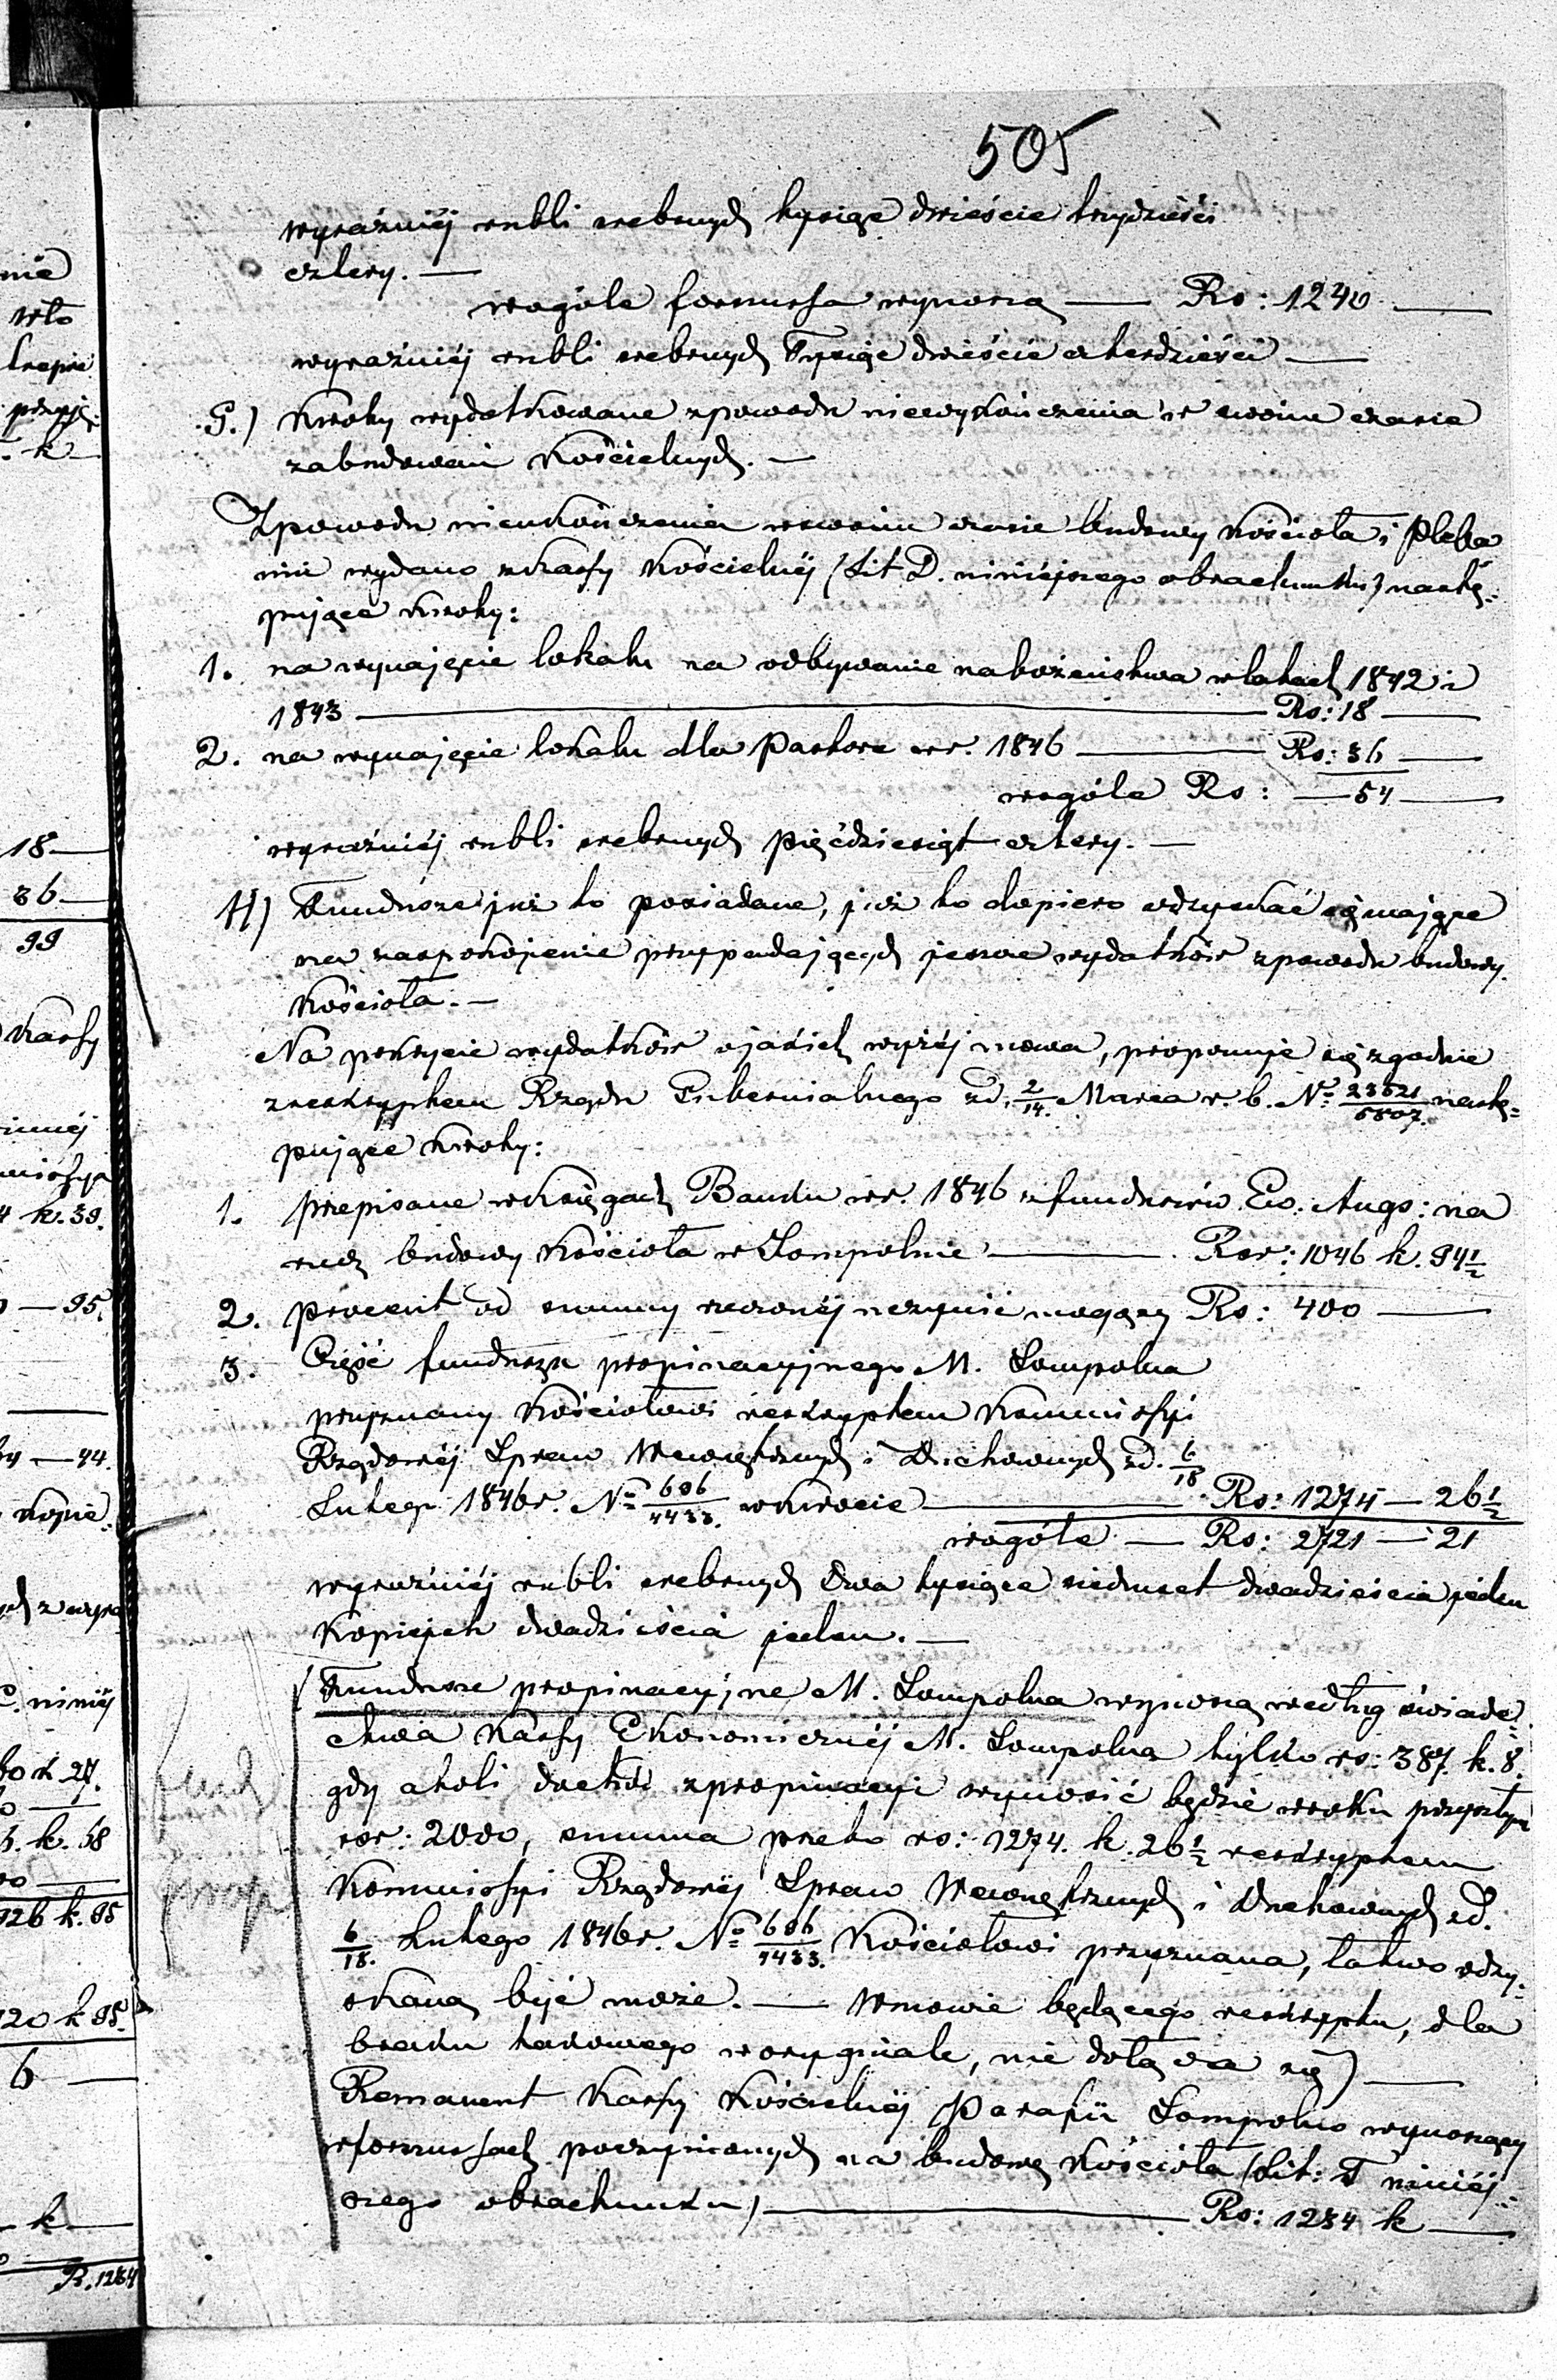 505
wyraźniéj rubli srebrnych tysiąc dwieście trzydzieści
cztery. —
wogóle forszussa wynoszą — Rs: 1240 —
wyraźniéj rubli srebrnych Tysiąc dwieście czterdzieści —
G.) Kwoty wydatkowane zpowodu niewykończenia w swoim czasie
zabudowań Kościelnych. —
Zpowodu nieukończenia wswoim czasie budowy Kościoła i Pleba
nii wydano zKassy Kościelnéj (Lit D. niniejszego obrachunku) nastę=
pujące Kwoty:
1. na wynajęcie lokalu na odbywanie nabożeństwa wlatach 1842 i
1843 — Rs: 18 —
2. na wynajęcie lokalu dla Pastora wr. 1846 — Rs: 36 —
wogóle Rs: — 54 —
wyraźniéj rubli srebrnych pięćdziesiąt cztery. —
H) Fundusze już to posiadane, już to dopiero odzyskać się mające
na zaspokojenie przypadających jeszcze wydatków zpowodu budowy
Kościoła. —
Na pokrycie wydatków ojakich wyżéj mowa, proponuje się zgodnie
zreskryptem Rządu Gubernialnego zd. 2/14. Marca r. b. No 23621/5807. nastę=
pujące Kwoty:
1. przepisane wKsięgach Banku wr. 1846 zfunduszów Ew. Augs: na
rzecz budowy Kościoła w Sompolnie — Rsr: 1046 k. 94 1/2
2. procent od summy rzeczonéj uczynić mogący Rs: 400 —
3. Część funduszu propinacyjnego M. Sompolna
przyznany Kościołowi reskryptem Kommissyi
Rządowéj Spraw Wewnętrznych i Duchownych zd. 6/18
Lutego 1846 r. No 606/4433. wKwocie — Rs: 1274 — 26 1/2
wogóle — Rs: 2721 — 21
wyraźniéj rubli srebrnych dwa tysiące siedmset dwadzieścia jeden
Kopiejek dwadzieścia jeden. —
(Fundusze propinacyjne M. Sompolna wynoszą według świade=
ctwa Kassy Ekonomicznéj M. Sompolna tylko rs: 387. k. 8.
gdy atoli dochód zpropinacyi wynosić będzie wroku przyszłym
rsr: 2000, summa przeto rs: 1274. k. 26 1/2 reskryptem
Kommissyi Rządowéj Spraw Wewnętrznych i Duchownych zd.
6/18. Lutego 1846 r. No 606/4433. Kościołowi przyznana, łatwo odzy=
skaną być może. — Wmowie będącego reskryptu, dla
braku takowego woryginale, nie dołącza się) —
Remanent Kassy Kościelnéj Parafii Sompolno wynoszący
wforszussach poczynionych na budowę Kościoła (Lit: F niniéj=
szego obrachunku) — Rs: 1234 k —